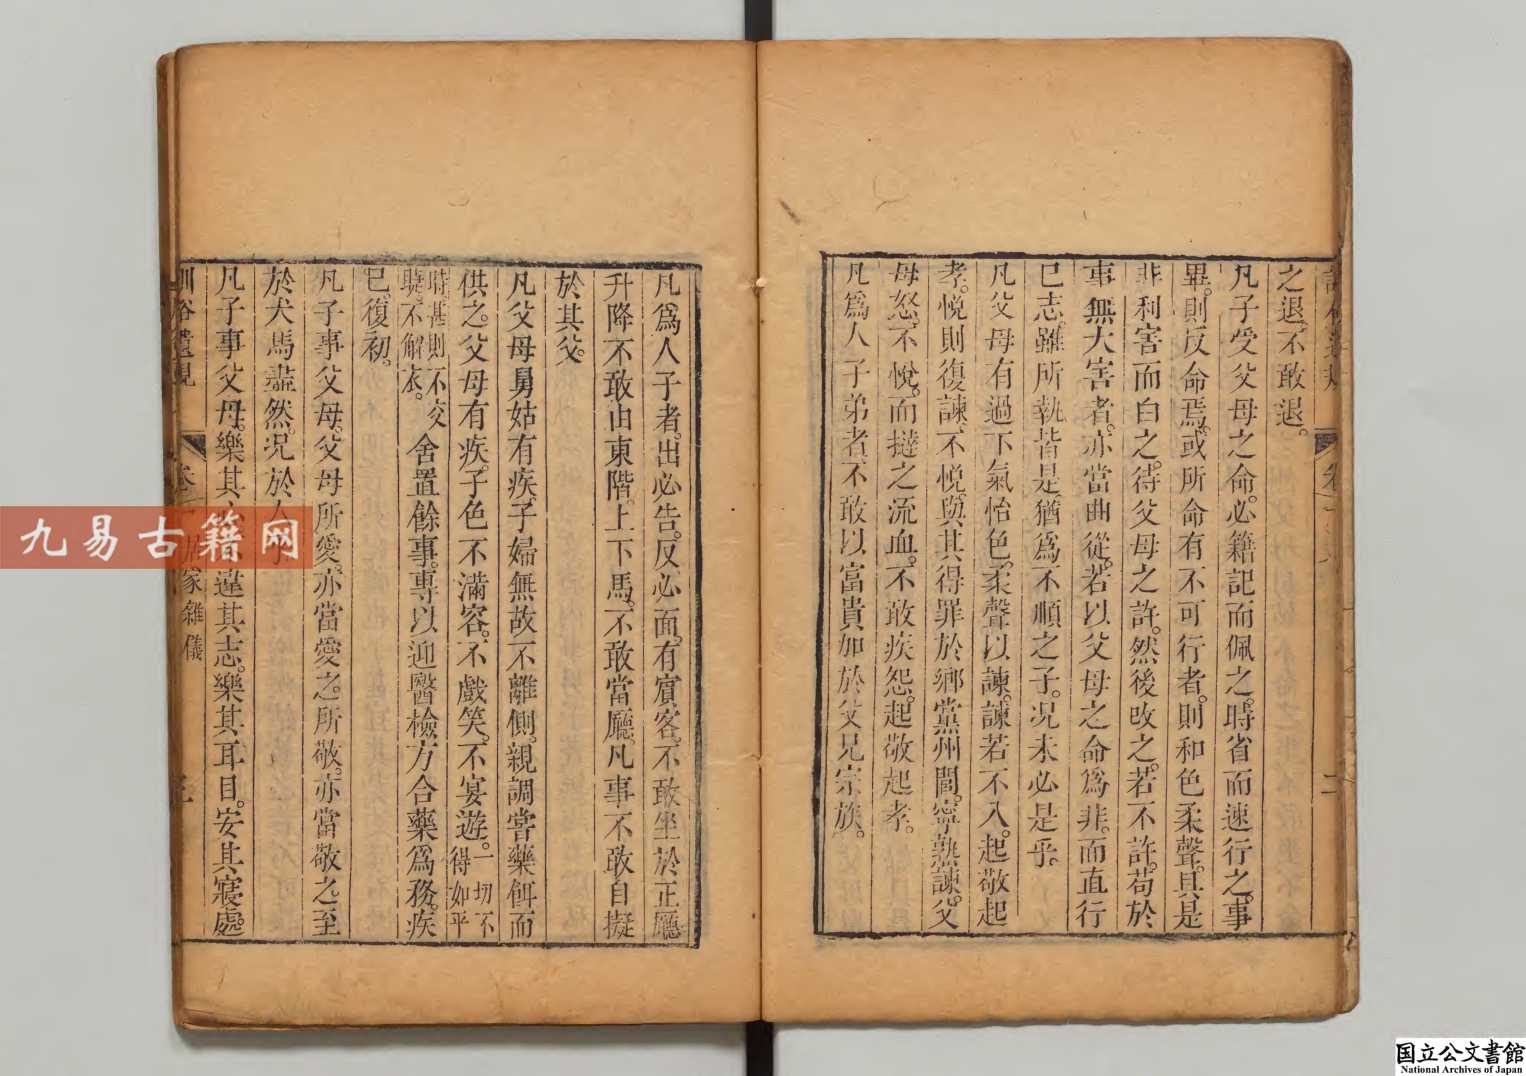 之退不敢退。
凡子受父母之命。必籍記而佩之。時省而速行之。事
畢。則反命焉。或所命有不可行者。則和色柔聲。具是
非利害而白之。待父母之許。然後改之。若不許。苟於
事無大害者。亦當曲從。若以父母之命爲非。而直行
己志。雖所執皆是。猶爲不順之子。况未必是乎。
凡父母有過。下氣怡色。柔聲以諫。諫若不入。起敬起
孝。悅則復諫。不悅。與其得罪於鄉黨州閭。寧熟諫。父
母怒。不悅。而撻之流血。不敢疾怨。起敬起孝。
凡爲人子弟者。不敢以富貴加於父兄宗族。
凡爲人子者。出必告。反必面。有賓客。不敢坐於正廳
升降不敢由東階。上下馬。不敢當廳。凡事不敢自擬
於其父。
凡父母舅姑有疾。子婦無故不離側。親調嘗藥餌而
供之。父母有疾。子色不滿容。不戲笑。不宴遊。一切不得如平
時。甚則不交睫。不解衣。舍置餘事。專以迎醫檢方合藥爲務。疾
已。復初。
凡子事父母。父母所愛。亦當愛之。所敬。亦當敬之。至
於犬馬盡然。况於人乎
凡子事父母。樂其 違其志。樂其耳目。安其寢處。
訓俗遺規 卷 居家雜儀
九易古籍网
国立公文書館
National Archives of Japan